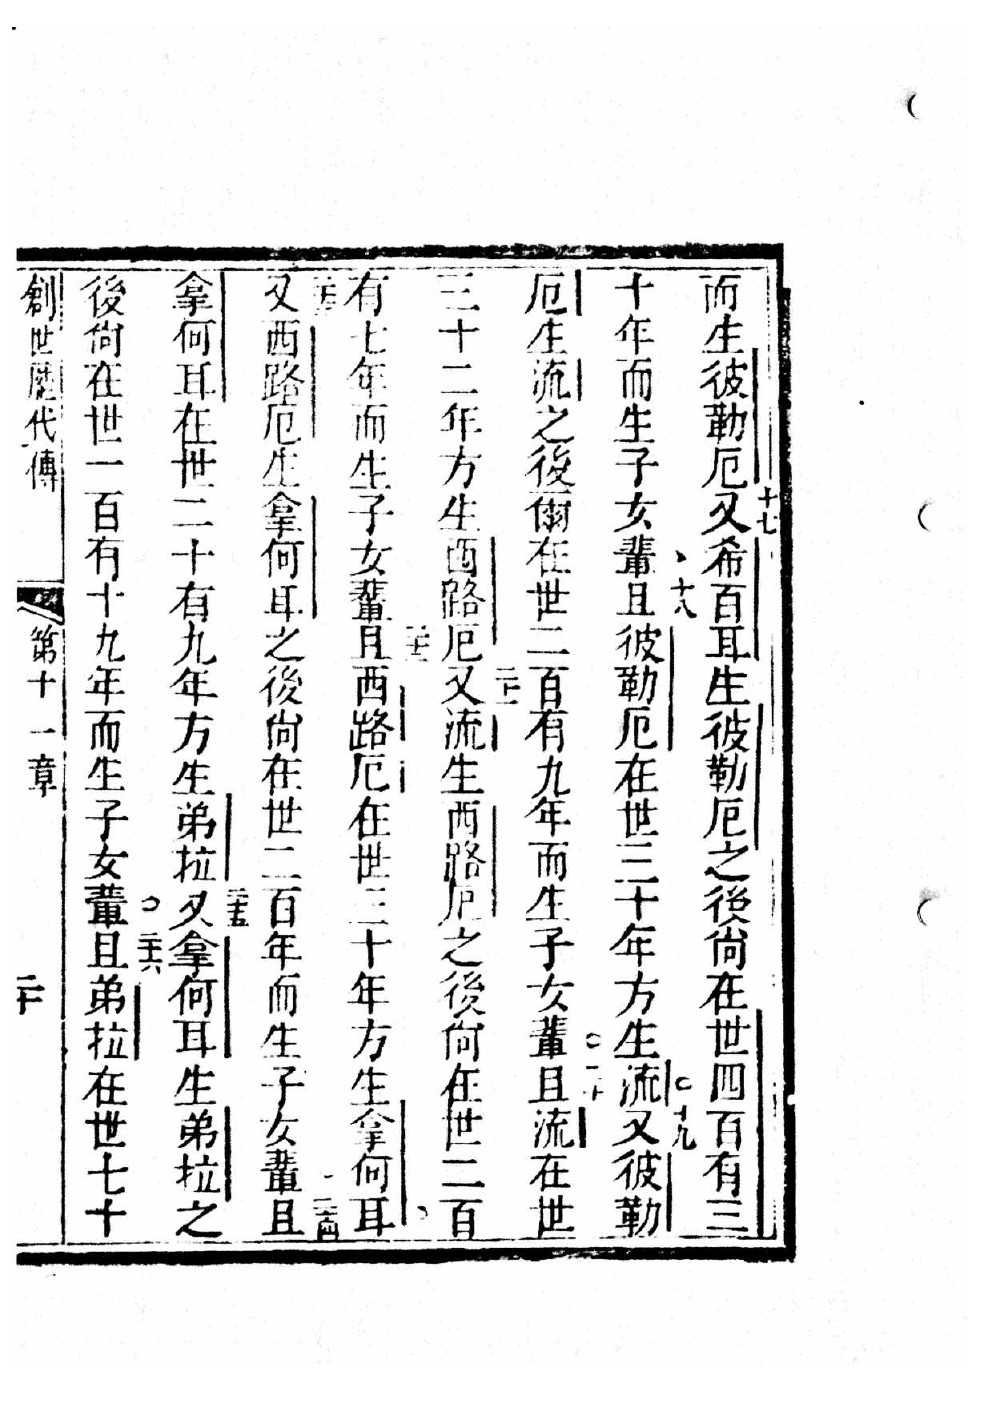 而生彼勒厄又十七希百耳生彼勒厄之後尙在世四百有三
十年而生子女輩十八且彼勒厄在世三十年方生流十九又彼勒
厄生流之後爾在世二百有九年而生子女輩二十且流在世
三十二年方生西路厄二十一又流生西路厄之後尙在世二百
有七年而生子女輩二十二且西路厄在世三十年方生拿何耳
二十三又西路厄生拿何耳之後尙在世二百年而生子女輩二十四且
拿何耳在世二十有九年方生弟拉二十五又拿何耳生弟拉之
後尙在世一百有十九年而生子女輩二十六且弟拉在世七十
創世歷代傳 第十一章 二十